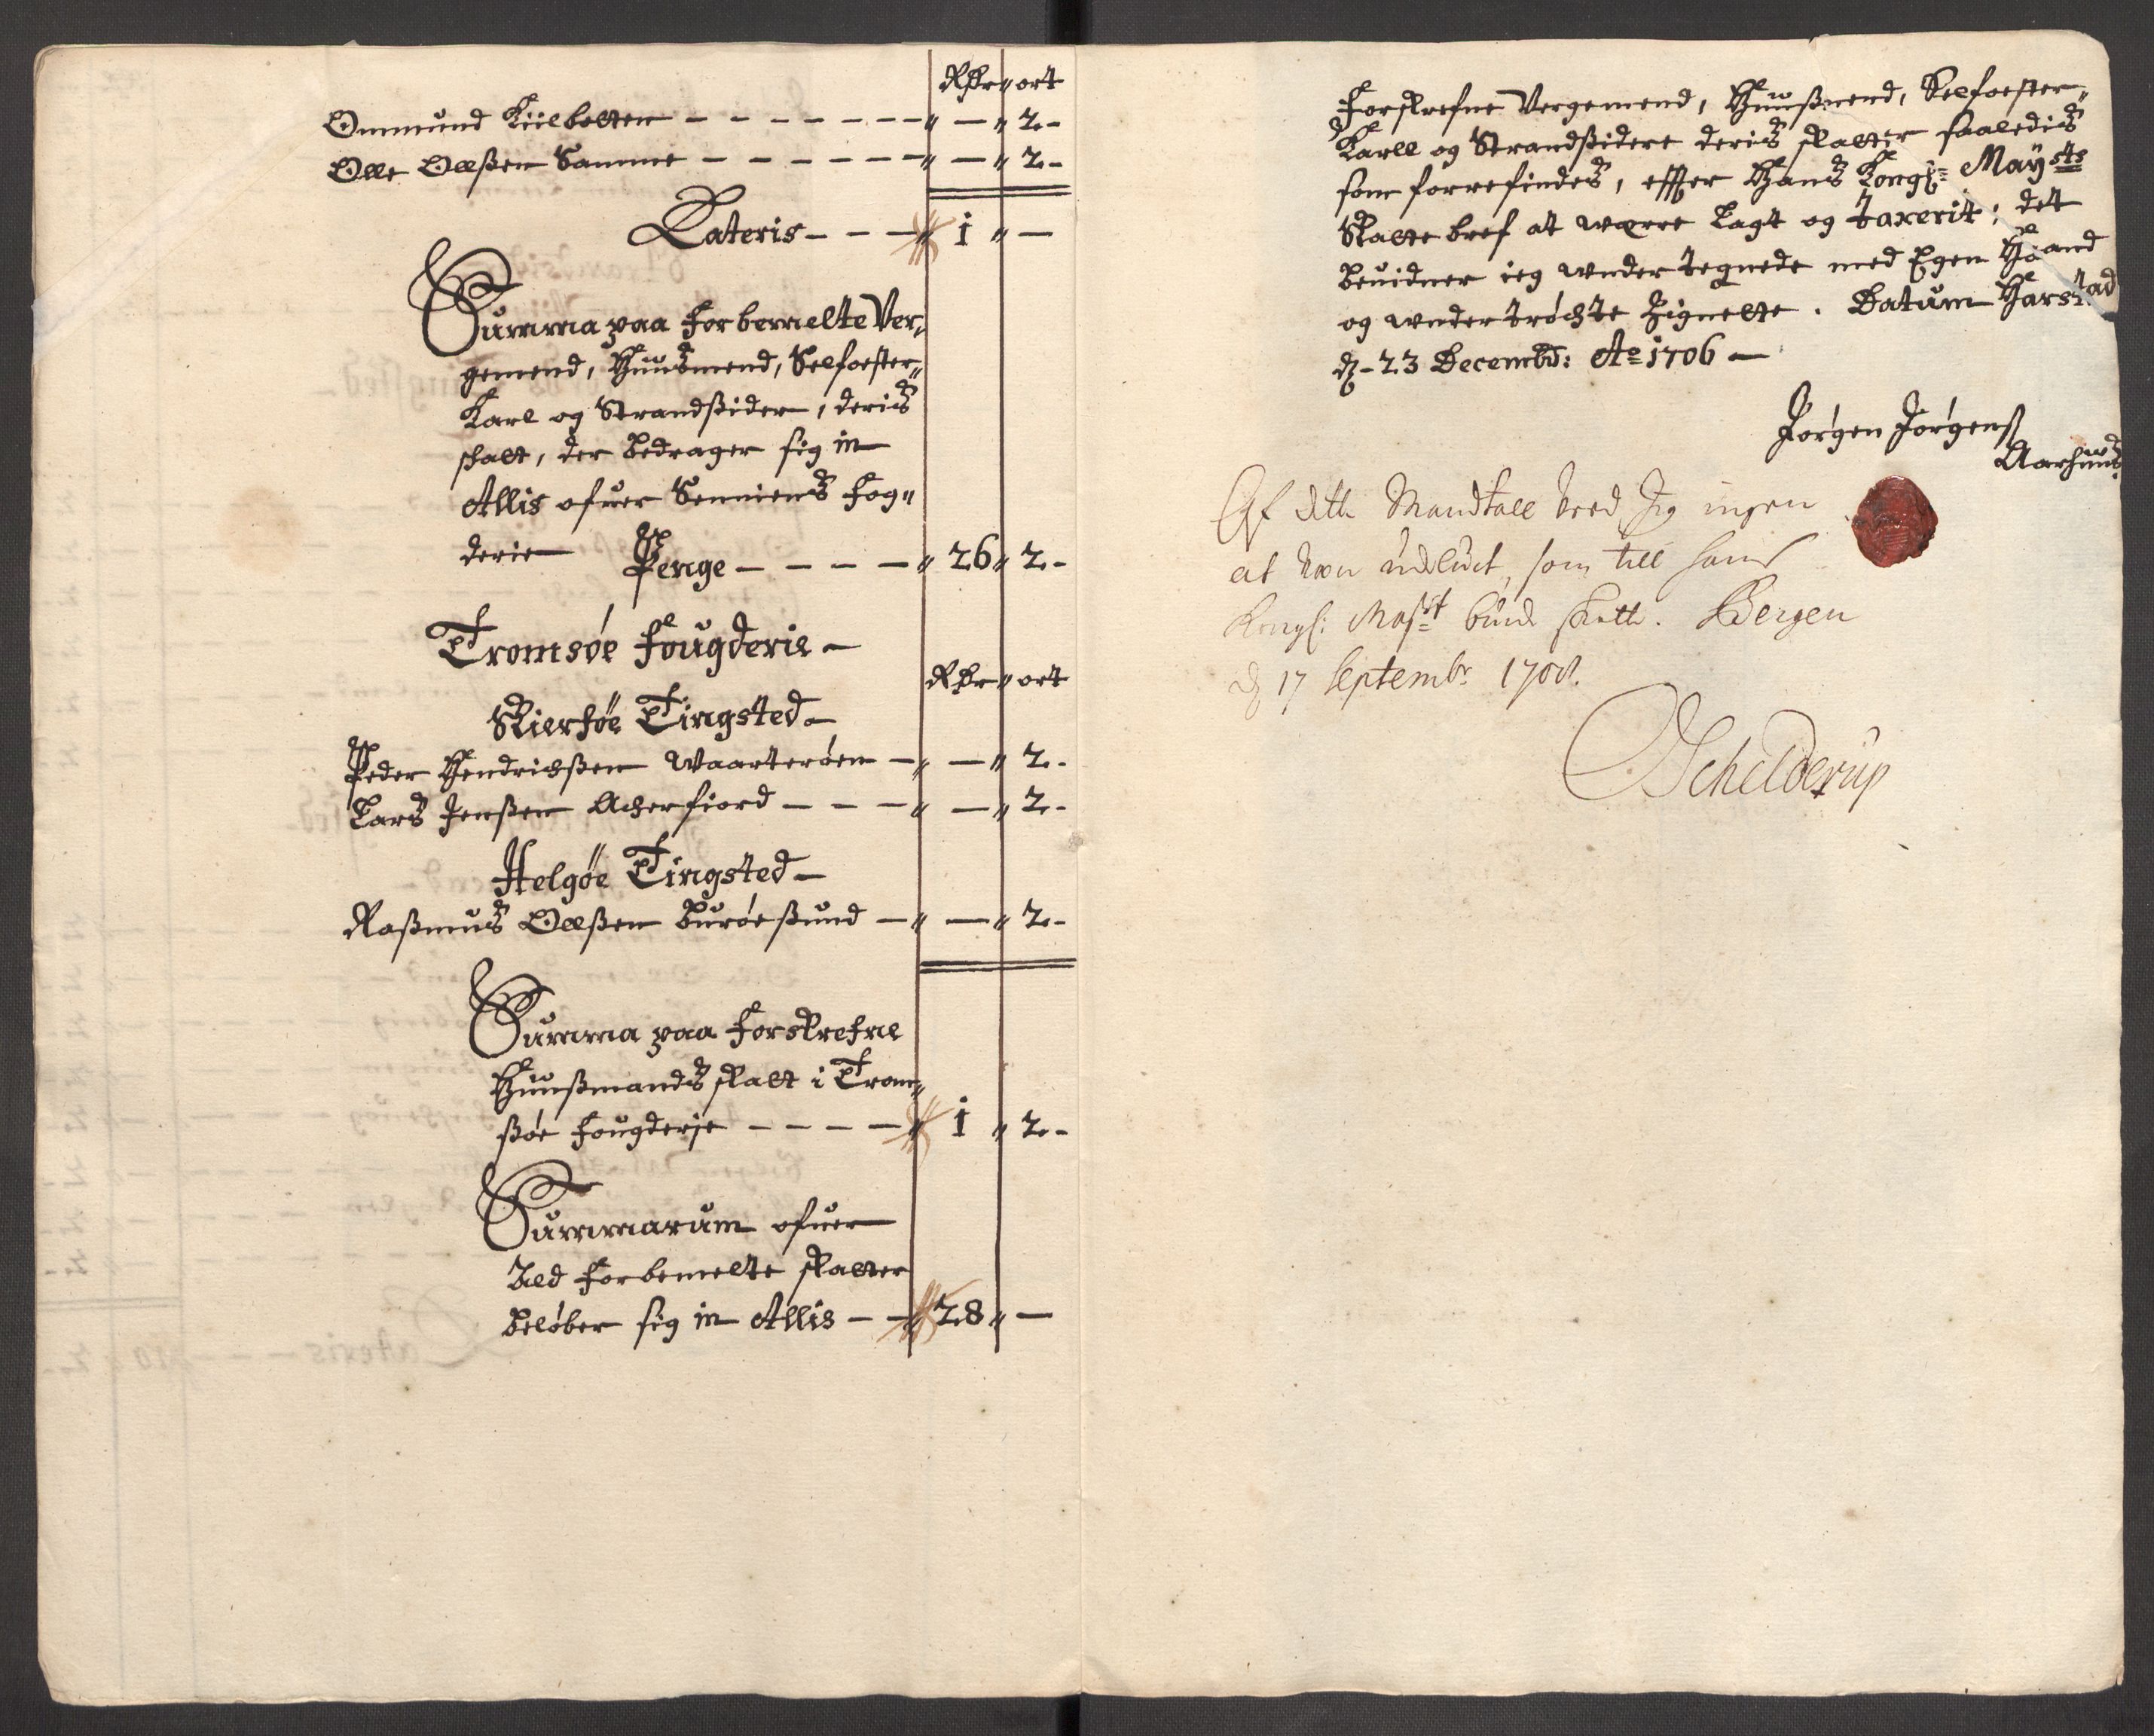 Rdr " ort
Ommund Kiilbotten - - - - - - - " — " 2 -
Olle Ollßen Samme - - - - - - " — " 2 -
Lateris - - - " 1 " —
Summa paa Forbemelte Ver,,
gemend, Huusmend, Selfoester,,
Karl og Strandßidern, deris
skatt, der bedrager sig in
Allis ofuer Senniens Fog,,
derie Penge - - - - " 26 " 2 -
Tromsøe Fougderie -
Rdr " ort
Skierføe Tingsted -
Peder Hendrichßen Waarterøen - " — " 2 -
Lars Jenßen Acherfiord - - - " — " 2 -
Helgøe Tingsted -
Raßmus Ollßen Burøeßund - " — " 2 -
Summa paa Forskrefne
Huußmands skatt i Trom,,
ßøe Fougderje - - - - " 1 " 2 -
Summarum ofuer
ald forbemelte skatter
beløber sig in Allis - - " 28 " —
Forskrefne Vergemend, Huußmend, Selfoester,,
Karll og Strandßidere deris skatter saaledis
som forrefindes, effter Hans Kongl: Mayts
Skattebref at werre Lagt og taxerit; det
beuidner ieg under tegnede med Egen Haand
og under trøchte Zignette. Datum Harstad
dn 23 Decembr: Ao 1706 -
Jørgen Jørgenß
Aarhuus
Af dette Mandtall veed Jeg ingen
at være udeluct, som till hans
Kongl: Mayst bund skatte. Bergen
d 17 Septembr 1708.
Schelderup